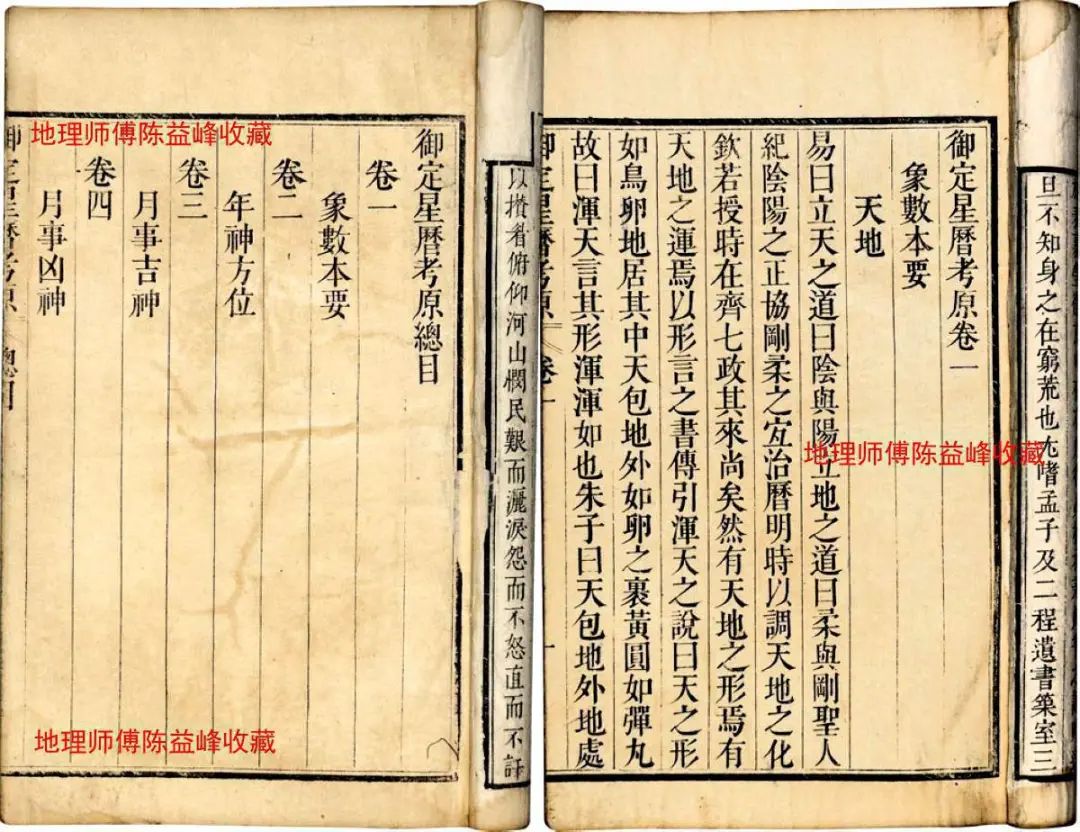 俯仰河山憫民艱而灑淚怨而不怒直而不訐
御定星曆考原總目
卷一
象數本要
卷二
年神方位
卷三
月事吉神
卷四
月事凶神
御定星曆考原 總目
地理师傅陈益峰收藏
地理师傅陈益峰收藏
不知身之在窮荒也尤嗜孟子及二程遺書築室三
御定星曆考原卷一
象數本要
天地
易曰立天之道曰陰與陽立地之道曰柔與剛聖人
紀陰陽之正協剛柔之宐治曆明時以調天地之化
欽若授時在齊七政其來尚矣然有天地之形焉有
天地之運焉以形言之書傳引渾天之說曰天之形
如鳥卵地居其中天包地外如卵之裹黃圓如彈丸
故曰渾天言其形渾渾如也朱子曰天包地外地處
御定星曆考原 卷一
地理师傅陈益峰收藏